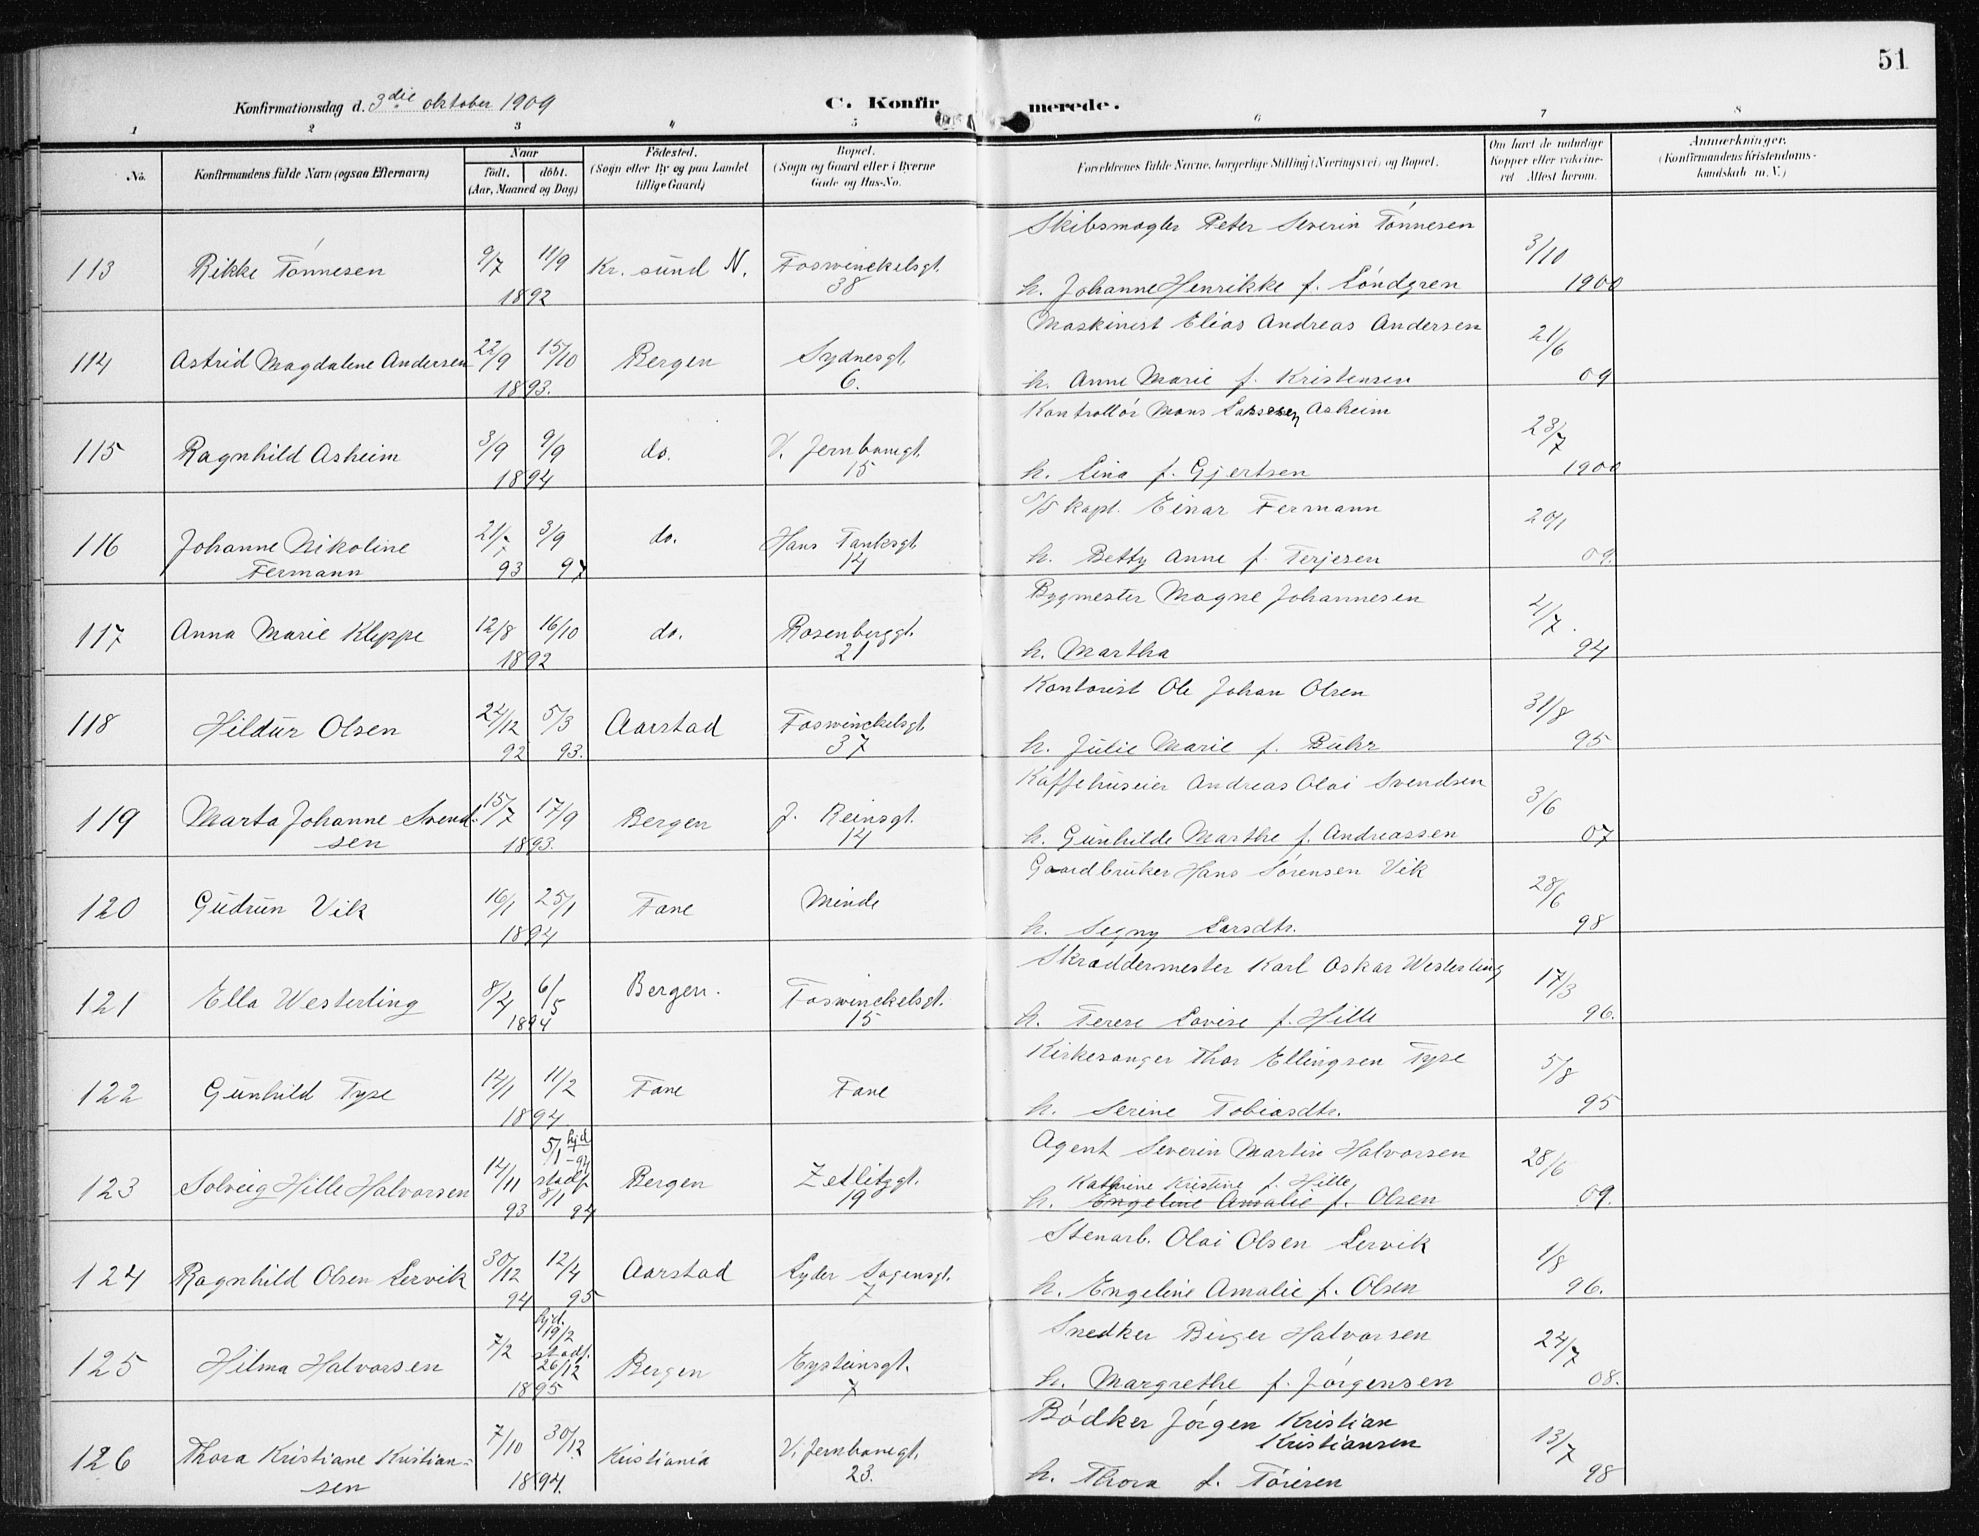 51
Konfirmationsdag d. 3die oktober 1909 C. Konfirmerede.
1 2 3 4 5 6 7 8
No. Konfirmandens fulde Navn (ogsaa Efternavn) Naar født. døbt. (Aar, Maaned og Dag) Fødested. (Sogn eller By og paa Landet tillige Gaard) Bopæl. (Sogn og Gaard eller i Byerne Gade og Hus-No. Forældrenes fulde Navne, borgerlige Stilling (Næringsvei) og Bopæl. Om havt de naturlige Kopper eller vaksineret. Attest herom. Anmærkninger. (Konfirmandens Kristendomskundskab m. V.)
Skibsmægler Peter Severin Tönnesen
113 Rikke Tönnesen 9/7 11/9 Kr. sund N. Foswinckelsgt. 3/10
1892 38 h. Johanne Henrikke f. Löndgren 1900
Maskinist Elias Andreas Andersen
114 Astrid Magdalene Andersen 22/9 15/10 Bergen Sydnesgt. 21/6
1893. 6. h. Anne Marie f. Kristensen 09
Kontrollör Mons Larssen Asheim
115 Ragnhild Asheim 3/9 9/9 do. V. Jernbanegt. 23/7
1894 15 h. Lina f. Gjertsen 1900
S/S kapt. Einar Fermann
116 Johanne Nikoline 21/7 3/9 do. Hans Tanksgt. 20/1
Fermann 93 97 14 h. Betty Anne f. Terjesen 09.
Bygmester Magne Johannesen
117 Anna Marie Kleppe 12/8 16/10 do. Rosenberggt. 21/7.
1892 21 h. Martha 94
Kontorist Ole Johan Olsen
118 Hildur Olsen 24/12 5/3 Aarstad Foswinckelsgt. 31/8
92 93. 37 h. Julie Marie f. Buhr 95
Kaffehuseier Andreas Olai Svendsen
119 Marta Johanne Svend- 15/7 17/9 Bergen J. Reinsgt. 3/6
sen 1893. 14 h. Gunhilde Marthe f. Andreassen 07
Gaardbruker Hans Sørensen Vik
120 Gudrun Vik 16/1 25/1 Fane Minde 28/6
1894 h. Segny Larsdtr. 98
Skræddermester Karl Oskar Westerling
121 Ella Westerling 8/4 6/5 Bergen. Foswinckelsgt. 17/3
1894 15 h. Terese Lovise f. Hille 96.
Kirkesanger Thor Ellingsen Tyse
122 Gunhild Tyse 14/1 11/2 Fane Fane 5/8
1894 h. Serine Tobiasdtr. 95
Agent Severin Martin Halvorsen
123 Solveig Hille Halvorsen 14/11 5/1 hjd -94 stadf. 8/1 Bergen Zetlitzgt. 28/6
Kathrine Kristine f. Hille
93 94 19 h. Engeline Amalie f. Olsen 09.
Stenarb. Olai Olsen Lervik
124 Ragnhild Olsen Lervik 30/12 12/4 Aarstad Lyder Sagensgt. 1/8
94 95 7 h. Engeline Amalie f. Olsen 96.
Snedker Birger Halvorsen
125 Hilma Halvorsen 7/2 hjd. 19/2 stadf. 26/12 Bergen Eysteinsgt. 24/7
1895 7 h. Margrethe f. Jørgensen 08.
Bödker Jörgen Kristian
Kristiansen
126 Thora Kristiane Kristian- 7/10 30/12 Kristiania V. Jernbanegt. 13/7
sen 1894. 23. h. Thora f. Töresen 98